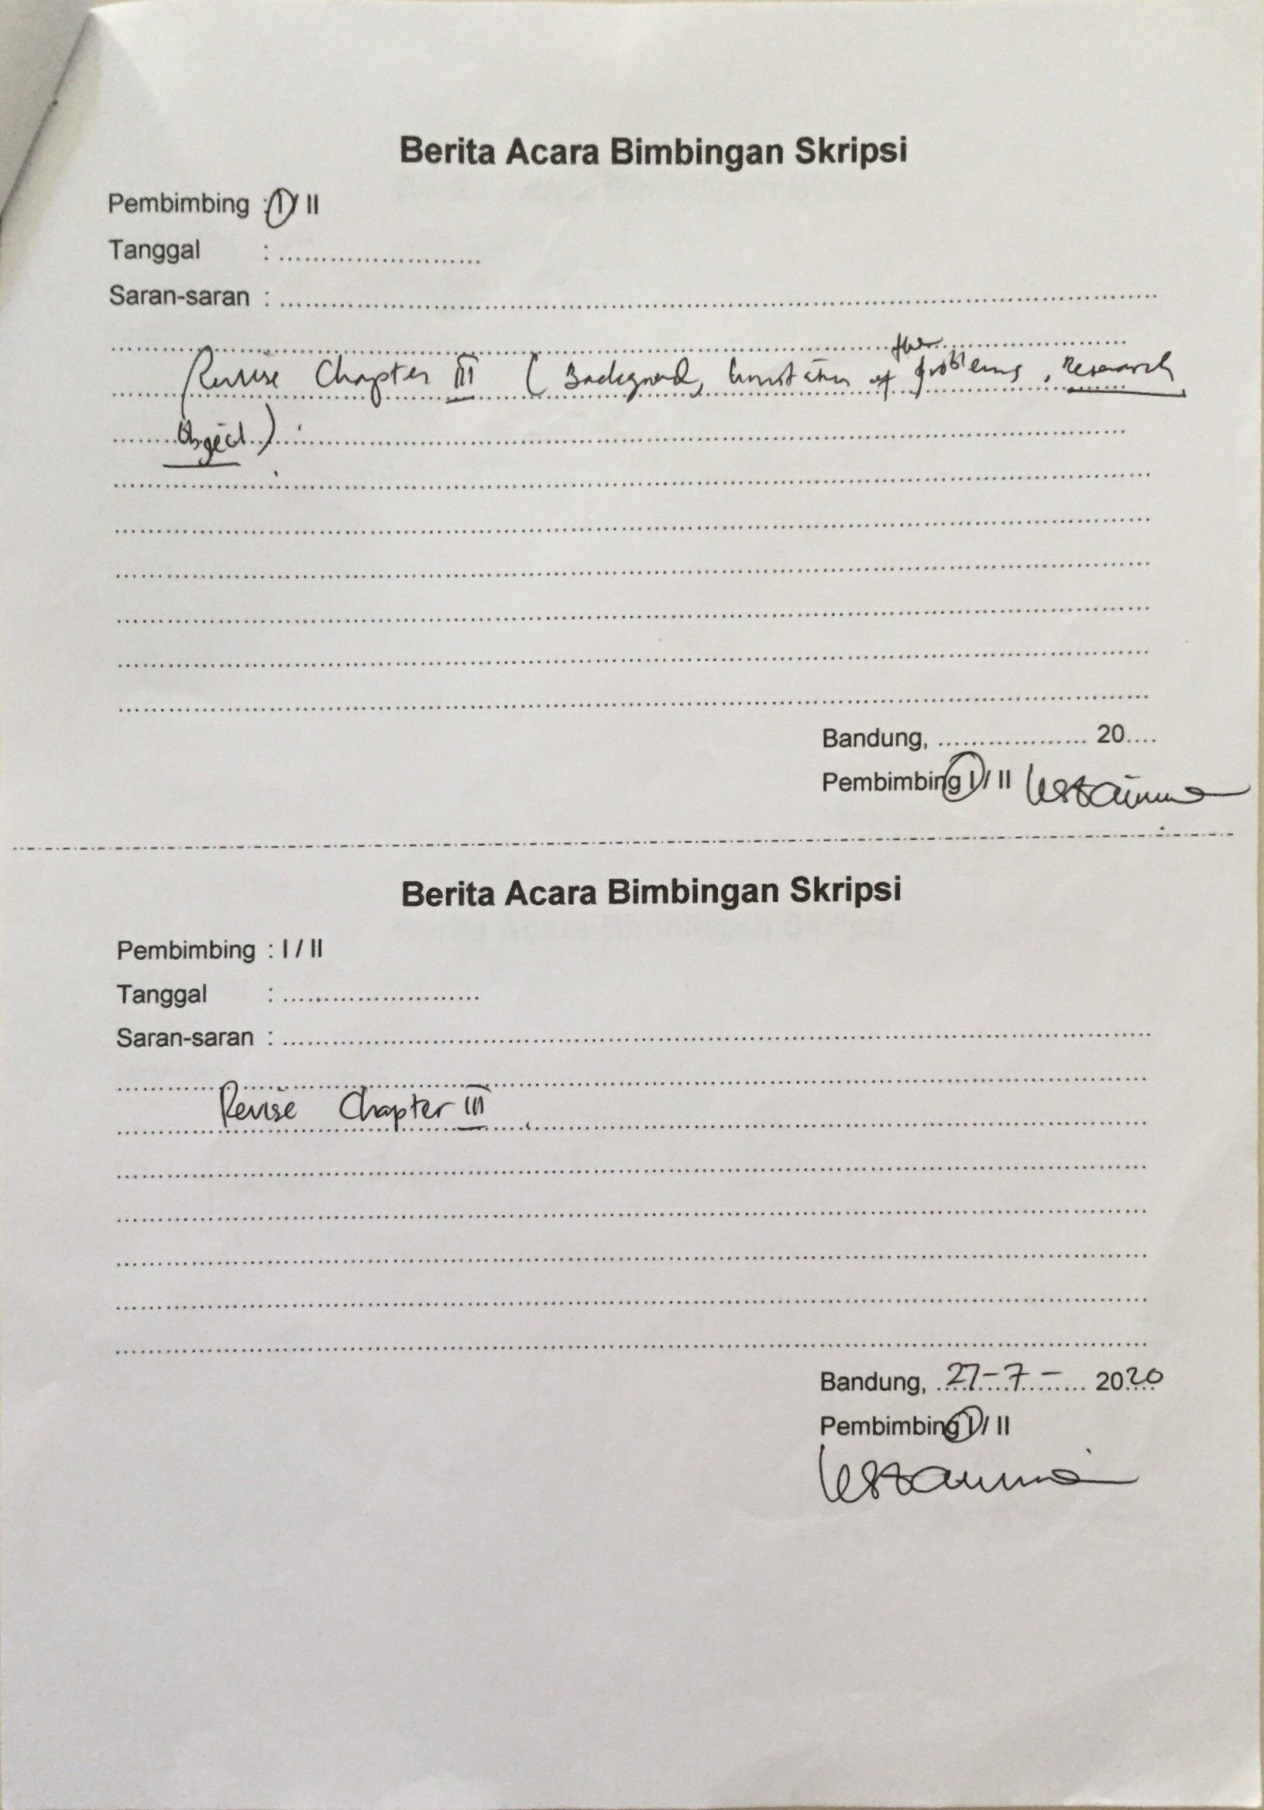 Berita Acara Bimbingan Skripsi
Pembimbing : I / II
Tanggal : ........................
Saran-saran : ........................
the
Revise Chapter III ( Background, limitation of problems, Research
Object ) .
Bandung, ................... 20....
Pembimbing I / II
Berita Acara Bimbingan Skripsi
Pembimbing : I / II
Tanggal : ........................
Saran-saran : ........................
Revise Chapter III .
Bandung, 27-7- 2020
Pembimbing I / II